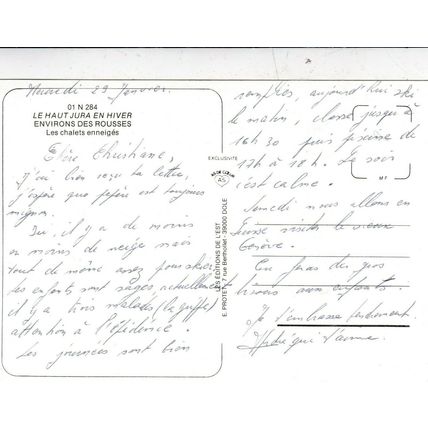 Mercredi 29 Janvier
01 N 284
LE HAUT JURA EN HIVER
ENVIRONS DES ROUSSES
Les chalets enneigés
Chère Christiane,
j'ai bien reçu ta lettre,
j'espère que pépère est toujours
mignon.
Ici, il y a de moins
en moins de neige mais
tout de même assez pour skier.
Les enfants sont sages, actuellement
il y a trois malades (la grippe)
attention à l'épidémie.
Les journées sont bien
EXCLUSIVITÉ
LES ÉDITIONS DE L'EST
E. PROTET 7 rue Berthollet - 39000 DOLE
MT
remplies, aujourd'hui ski
le matin, classe jusqu'à
16h30 puis piscine de
17h à 18h. Le soir
c'est calme.
Samedi nous allons en
Suisse visiter le vieux
Genève.
Tu feras des gros
bisous aux enfants.
Je t'embrasse tendrement.
qui t'aime.